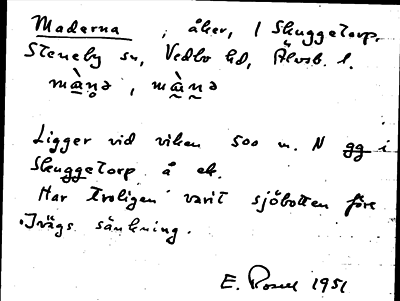 Maderna , åker, / Skuggetorp,
Steneby sn, Vedbo hd, Älvsb. l.
mà̱n̥ə , mà̰n̰ə
Ligger vid viken 500 m. N gg i
Skuggetorp å ek.
Har troligen varit sjöbotten före
Ivägs sänkning.
E. Rosell 1951